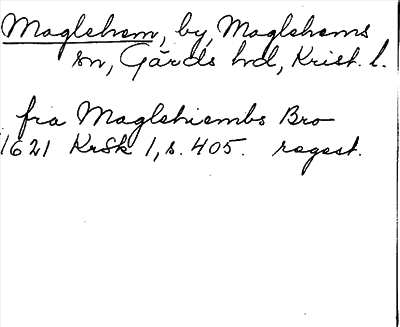 Maglehem, by, Maglehems
sn, Gärds hd, Krist. l.
fra Maglehiembs Bro
1621 KrSk 1, s. 405. regest.